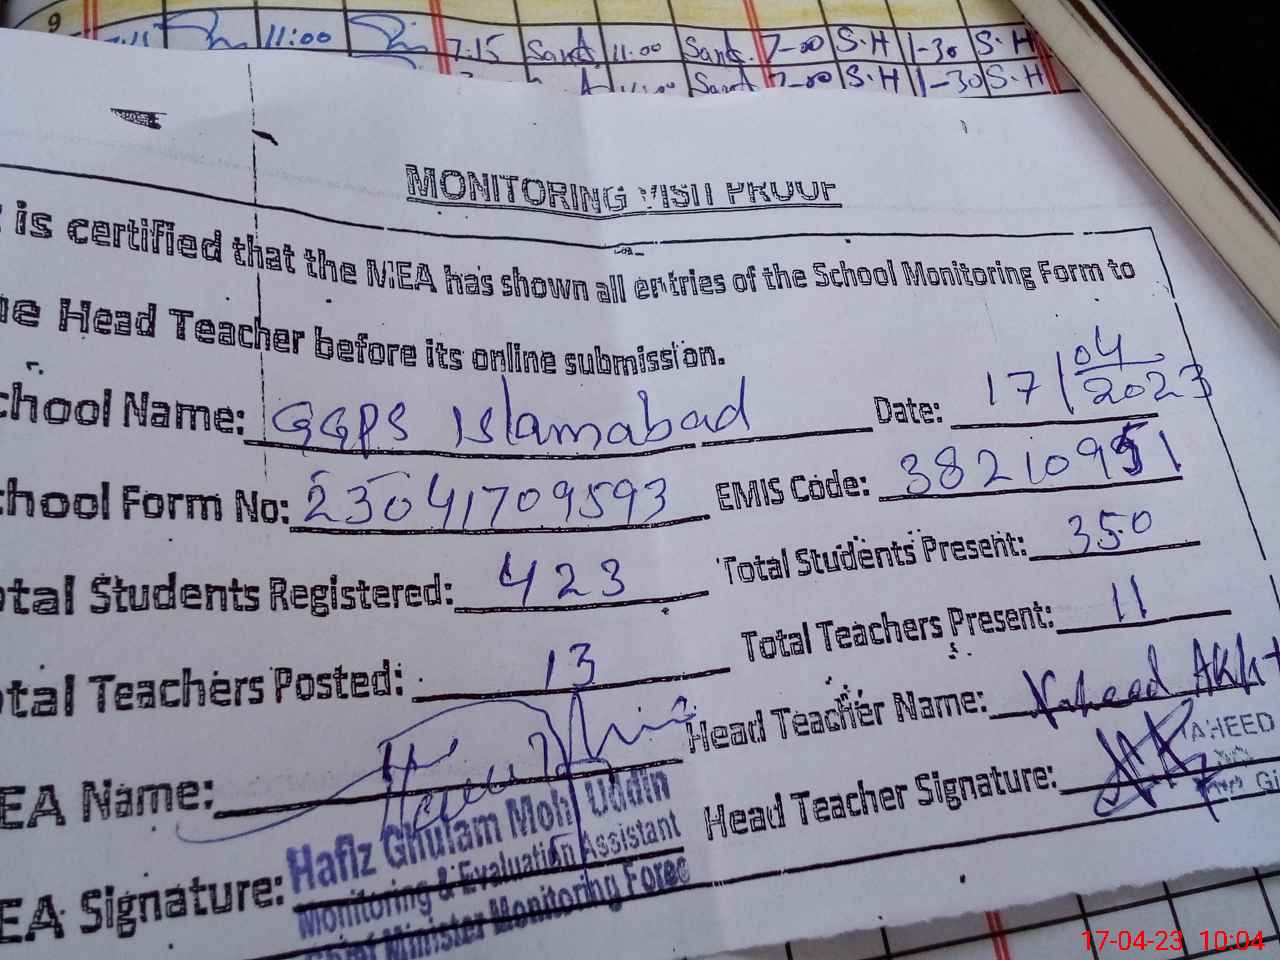 9
7:15 11:00 7:15 Sand 11:00 Sand. 7-00 S.H 1-30 S.H
11:00 Sand 7-00 S.H 1-30 S.H
MONITORING VISIT PROOF
is certified that the MEA has shown all entries of the School Monitoring Form to
Head Teacher before its online submission.
chool Name: GGPS Islamabad Date: 17/04/2023
chool Form No: 23041709593 EMIS Code: 38210951
otal Students Registered: 423 Total Students Present: 350
otal Teachers Posted: 13 Total Teachers Present: 11
EA Name: Head Teacher Name: Naheed Akht
EA Signature: Head Teacher Signature:
AHEED
Hafiz Ghulam Mohi Uddin
Monitoring & Evaluation Assistant
Chief Minister Monitoring Force
17-04-23 10:04